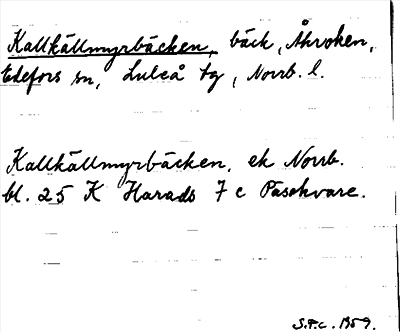 Kallkällmyrbäcken, bäck, Åkroken,
Edefors sn, Luleå tg, Norrb. l.
Kallkällmyrbäcken, ek Norrb.
bl. 25 K Harads 7 c Pasekvare.
S.F.C. 1959.